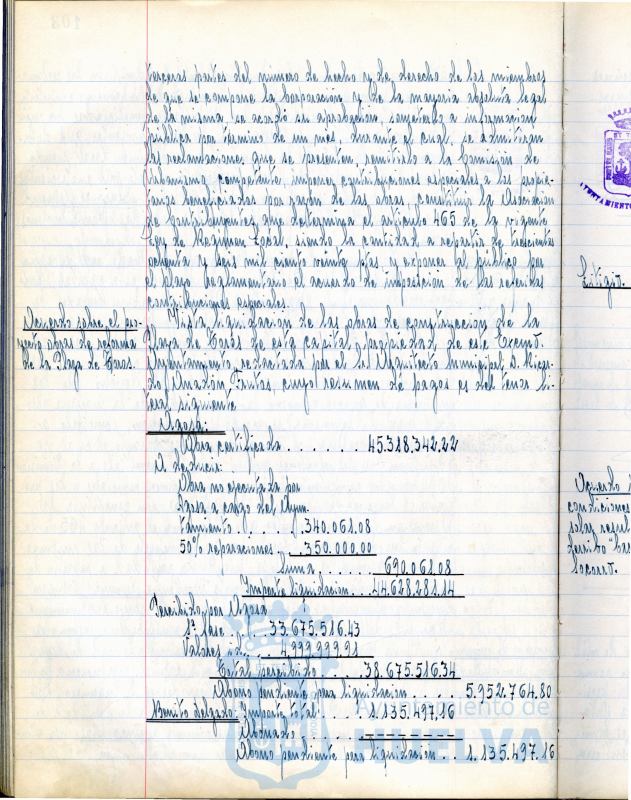 terceras partes del número de hecho y de derecho de los miembros
de que se compone la Corporación y de la mayoría absoluta legal
de la misma, se acordó su aprobación, someterlo a información
pública por término de un mes, durante el cual se admitirán
las reclamaciones que se presenten, remitirlo a la Comisión de
Urbanismo competente, imponer contribuciones especiales a los propie-
tarios beneficiados por razón de las obras, constituir la Asociación
de Contribuyentes que determina el artículo 465 de la vigente
Ley de Régimen Local, siendo la cantidad a repartir de trescientas
ochenta y seis mil ciento veinte ptas y exponer al público por
el plazo reglamentario el acuerdo de imposición de las referidas
contribuciones especiales.
Acuerdo sobre el pro-
yecto obras de reforma
de la Plaza de Toros.
Vista liquidación de las obras de construcción de la
Plaza de Toros de esta capital, propiedad de este Excmo.
Ayuntamiento, redactada por el Sr. Arquitecto Municipal, D. Ricar-
do Anadón Frutos, cuyo resumen de pagos es del tenor li-
teral siguiente
Agosa:
Obra certificada . . . . . . . 45.318.342.22
A deducir:
Obra no ejecutada por
Agosa a cargo del Ayun-
tamiento . . . . . 340.061.08
50% reparaciones . . 350.000.00
Suma . . . . . 690.061.08
Importe liquidación . . . 44.628.281.14
Percibido por Agosa
1ª fase . . . . 33.675.516.43
Valores id. . . . 4.999.999.91
Total percibido . . . . 38.675.516.34
Abono pendiente para liquidación . . . . 5.952.764.80
Benito Delgado: Importe total . . . . 1.135.497.16
Abonado . . . . --------
Abono pendiente para liquidación . . . 1.135.497.16
Ayuntamiento de
HUELVA
AYUNTAMIENTO
Litigio.
Acuerdo
condiciones
solar
derribo
Socorro.